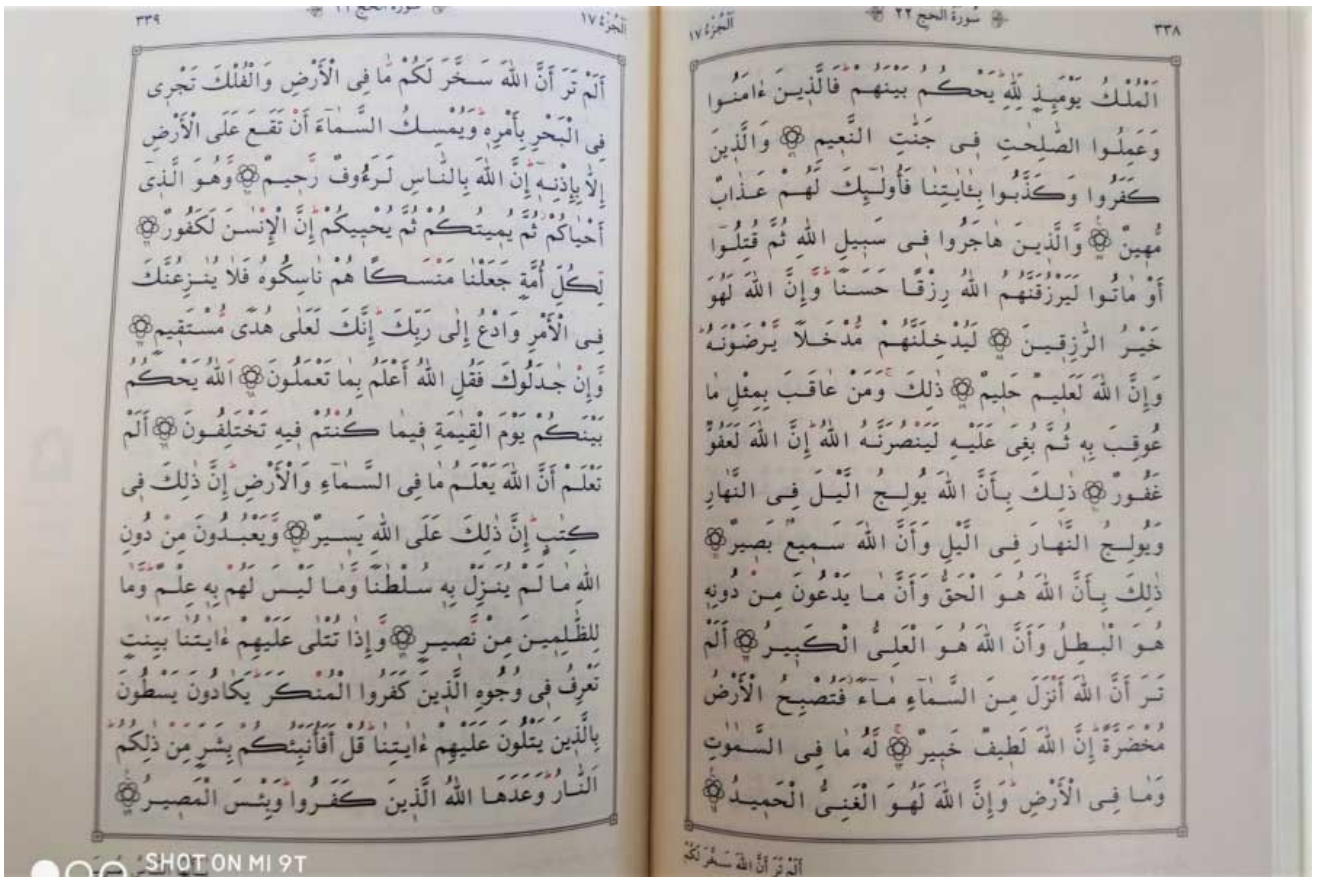 ٣٣٨
سُورَةُ الْحَجِّ ٢٢
اَلْجُزْءُ ١٧
اَلْمُلْكُ يَوْمَئِذٍ لِلّٰهِ يَحْكُمُ بَيْنَهُمْ فَالَّذِينَ ءَامَنُوا
وَعَمِلُوا الصّٰلِحٰتِ فِى جَنّٰتِ النَّعِيمِ وَالَّذِينَ
كَفَرُوا وَكَذَّبُوا بِـَٔايٰتِنٰا فَأُولٰٓئِكَ لَهُمْ عَذٰابٌ
مُهِينٌ وَالَّذِينَ هٰاجَرُوا فِى سَبِيلِ اللّٰهِ ثُمَّ قُتِلُوٓا
أَوْ مٰاتُوا لَيَرْزُقَنَّهُمُ اللّٰهُ رِزْقًا حَسَنًا وَإِنَّ اللّٰهَ لَهُوَ
خَيْرُ الرّٰزِقِينَ لَيُدْخِلَنَّهُمْ مُدْخَلًا يَرْضَوْنَهُ
وَإِنَّ اللّٰهَ لَعَلِيمٌ حَلِيمٌ ذٰلِكَ وَمَنْ عٰاقَبَ بِمِثْلِ مٰا
عُوقِبَ بِهِ ثُمَّ بُغِىَ عَلَيْهِ لَيَنْصُرَنَّهُ اللّٰهُ إِنَّ اللّٰهَ لَعَفُوٌّ
غَفُورٌ ذٰلِكَ بِأَنَّ اللّٰهَ يُولِجُ الَّيْلَ فِى النَّهٰارِ
وَيُولِجُ النَّهٰارَ فِى الَّيْلِ وَأَنَّ اللّٰهَ سَمِيعٌ بَصِيرٌ
ذٰلِكَ بِأَنَّ اللّٰهَ هُوَ الْحَقُّ وَأَنَّ مٰا يَدْعُونَ مِنْ دُونِهِ
هُوَ الْبٰطِلُ وَأَنَّ اللّٰهَ هُوَ الْعَلِىُّ الْكَبِيرُ أَلَمْ
تَرَ أَنَّ اللّٰهَ أَنْزَلَ مِنَ السَّمٰاءِ مٰاءً فَتُصْبِحُ الْأَرْضُ
مُخْضَرَّةً إِنَّ اللّٰهَ لَطِيفٌ خَبِيرٌ لَهُ مٰا فِى السَّمٰوٰتِ
وَمٰا فِى الْأَرْضِ وَإِنَّ اللّٰهَ لَهُوَ الْغَنِىُّ الْحَمِيدُ
أَلَمْ تَرَ أَنَّ اللّٰهَ سَخَّرَ لَكُمْ
اَلْجُزْءُ ١٧
سُورَةُ الْحَجِّ
٣٣٩
أَلَمْ تَرَ أَنَّ اللّٰهَ سَخَّرَ لَكُمْ مٰا فِى الْأَرْضِ وَالْفُلْكَ تَجْرِى
فِى الْبَحْرِ بِأَمْرِهِ وَيُمْسِكُ السَّمٰاءَ أَنْ تَقَعَ عَلَى الْأَرْضِ
إِلّٰا بِإِذْنِهِ إِنَّ اللّٰهَ بِالنّٰاسِ لَرَءُوفٌ رَحِيمٌ وَهُوَ الَّذِىٓ
أَحْيٰاكُمْ ثُمَّ يُمِيتُكُمْ ثُمَّ يُحْيِيكُمْ إِنَّ الْإِنْسٰنَ لَكَفُورٌ
لِكُلِّ أُمَّةٍ جَعَلْنٰا مَنْسَكًا هُمْ نٰاسِكُوهُ فَلٰا يُنٰزِعُنَّكَ
فِى الْأَمْرِ وَادْعُ إِلٰى رَبِّكَ إِنَّكَ لَعَلٰى هُدًى مُسْتَقِيمٍ
وَإِنْ جٰدَلُوكَ فَقُلِ اللّٰهُ أَعْلَمُ بِمٰا تَعْمَلُونَ اللّٰهُ يَحْكُمُ
بَيْنَكُمْ يَوْمَ الْقِيٰمَةِ فِيمٰا كُنْتُمْ فِيهِ تَخْتَلِفُونَ أَلَمْ
تَعْلَمْ أَنَّ اللّٰهَ يَعْلَمُ مٰا فِى السَّمٰاءِ وَالْأَرْضِ إِنَّ ذٰلِكَ فِى
كِتٰبٍ إِنَّ ذٰلِكَ عَلَى اللّٰهِ يَسِيرٌ وَيَعْبُدُونَ مِنْ دُونِ
اللّٰهِ مٰا لَمْ يُنَزِّلْ بِهِ سُلْطٰنًا وَمٰا لَيْسَ لَهُمْ بِهِ عِلْمٌ وَمٰا
لِلظّٰلِمِينَ مِنْ نَصِيرٍ وَإِذٰا تُتْلٰى عَلَيْهِمْ ءٰايٰتُنٰا بَيِّنٰتٍ
تَعْرِفُ فِى وُجُوهِ الَّذِينَ كَفَرُوا الْمُنْكَرَ يَكٰادُونَ يَسْطُونَ
بِالَّذِينَ يَتْلُونَ عَلَيْهِمْ ءٰايٰتِنٰا قُلْ أَفَأُنَبِّئُكُمْ بِشَرٍّ مِنْ ذٰلِكُمُ
النّٰارُ وَعَدَهَا اللّٰهُ الَّذِينَ كَفَرُوا وَبِئْسَ الْمَصِيرُ
SHOT ON MI 9T